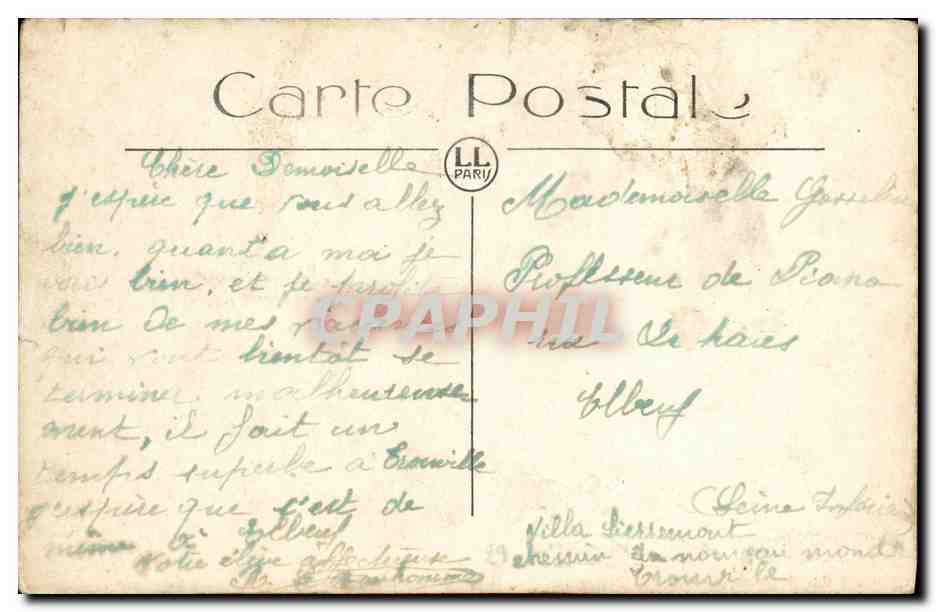 Carte Postale
LL
PARIS
Chère Demoiselle
j'espère que vous allez
bien, quant a moi je
vais bien, et je profite
bien de mes vacances
qui vont bientôt se
terminer malheureuse
ment, il fait un
temps superbe à Trouville
j'espère que c'est de
même à Elbeuf
Votre élève affectueuse
Mademoiselle Gosselin
Proffesseur de Piano
rue
Elbeuf
(Seine Inférieure)
Villa
chemin du nouveau monde
Trouville
CPAPHIL